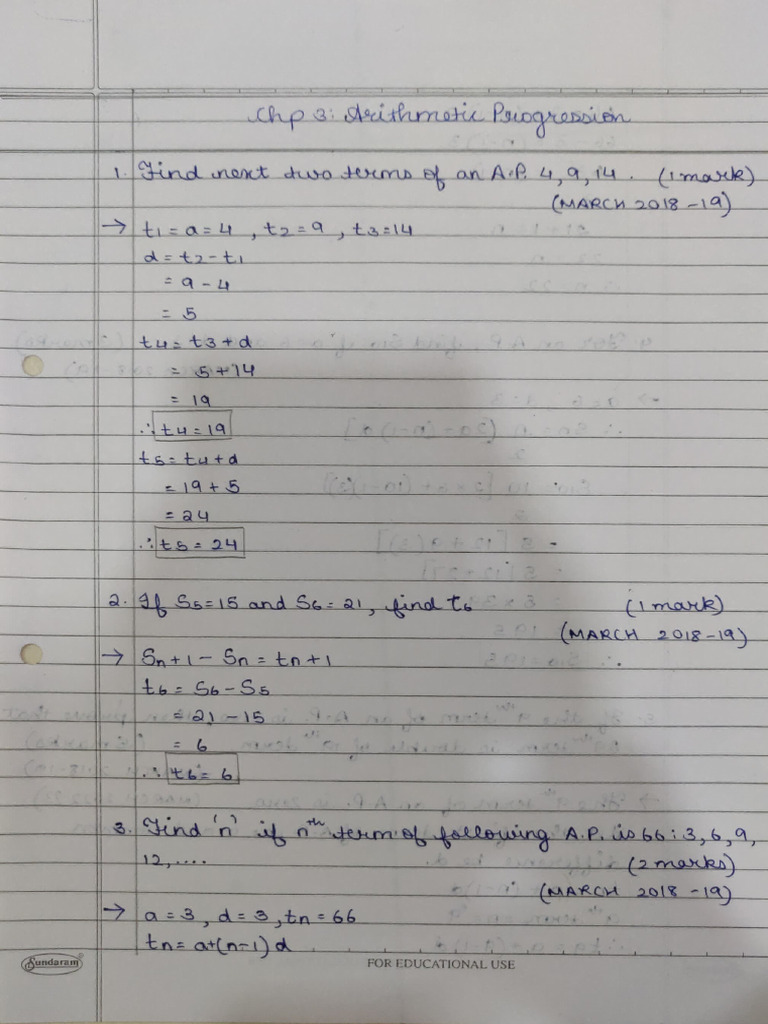 Chp 3: Arithmetic Progression
1. Find next two terms of an A.P. 4, 9, 14. (1 mark)
(MARCH 2018-19)
→ t1 = a = 4 , t2 = 9 , t3 = 14
d = t2 - t1
= 9 - 4
= 5
t4 = t3 + d
= 5 + 14
= 19
∴ t4 = 19
t5 = t4 + d
= 19 + 5
= 24
∴ t5 = 24
2. If S5 = 15 and S6 = 21, find t6 (1 mark)
(MARCH 2018-19)
→ Sn+1 - Sn = tn+1
t6 = S6 - S5
= 21 - 15
= 6
∴ t6 = 6
3. Find 'n' if nth term of following A.P. is 66: 3, 6, 9,
12, .... (2 marks)
(MARCH 2018-19)
→ a = 3, d = 3, tn = 66
tn = a+(n-1)d
Sundaram FOR EDUCATIONAL USE